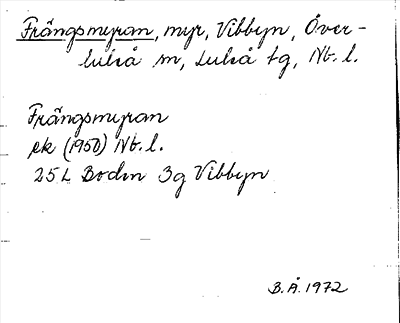 Frängsmyran, myr, Vibbyn, Över-
luleå sn, Luleå tg, Nb. l.
Frängsmyran
ek (1950) Nb. l.
25L Boden 3g Vibbyn
B.Å. 1972